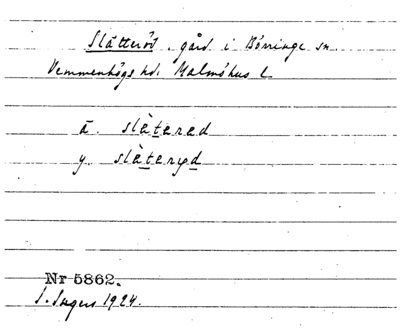 Slätteröd. gård i Börringe sn.
Vemmenhögs hd. Malmöhus l.
ä. slätered
y. släteryd
Nr 5862.
S. Ingers 1924.